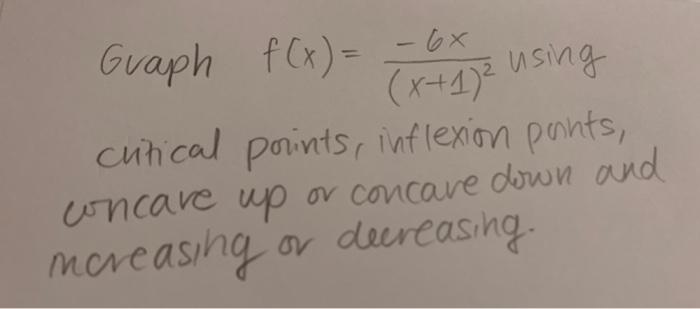 Graph f(x) = -6x/(x+1)² using
critical points, inflexion points,
concave up or concave down and
increasing or decreasing.